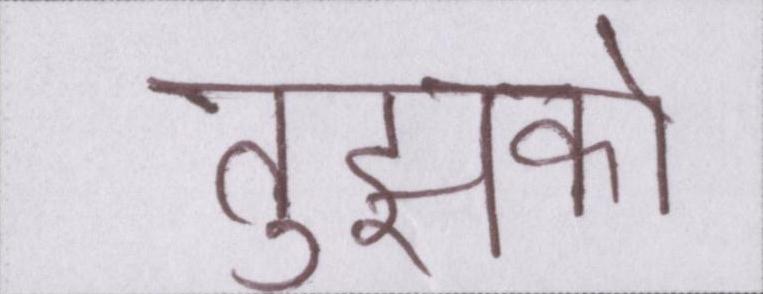 तुझको